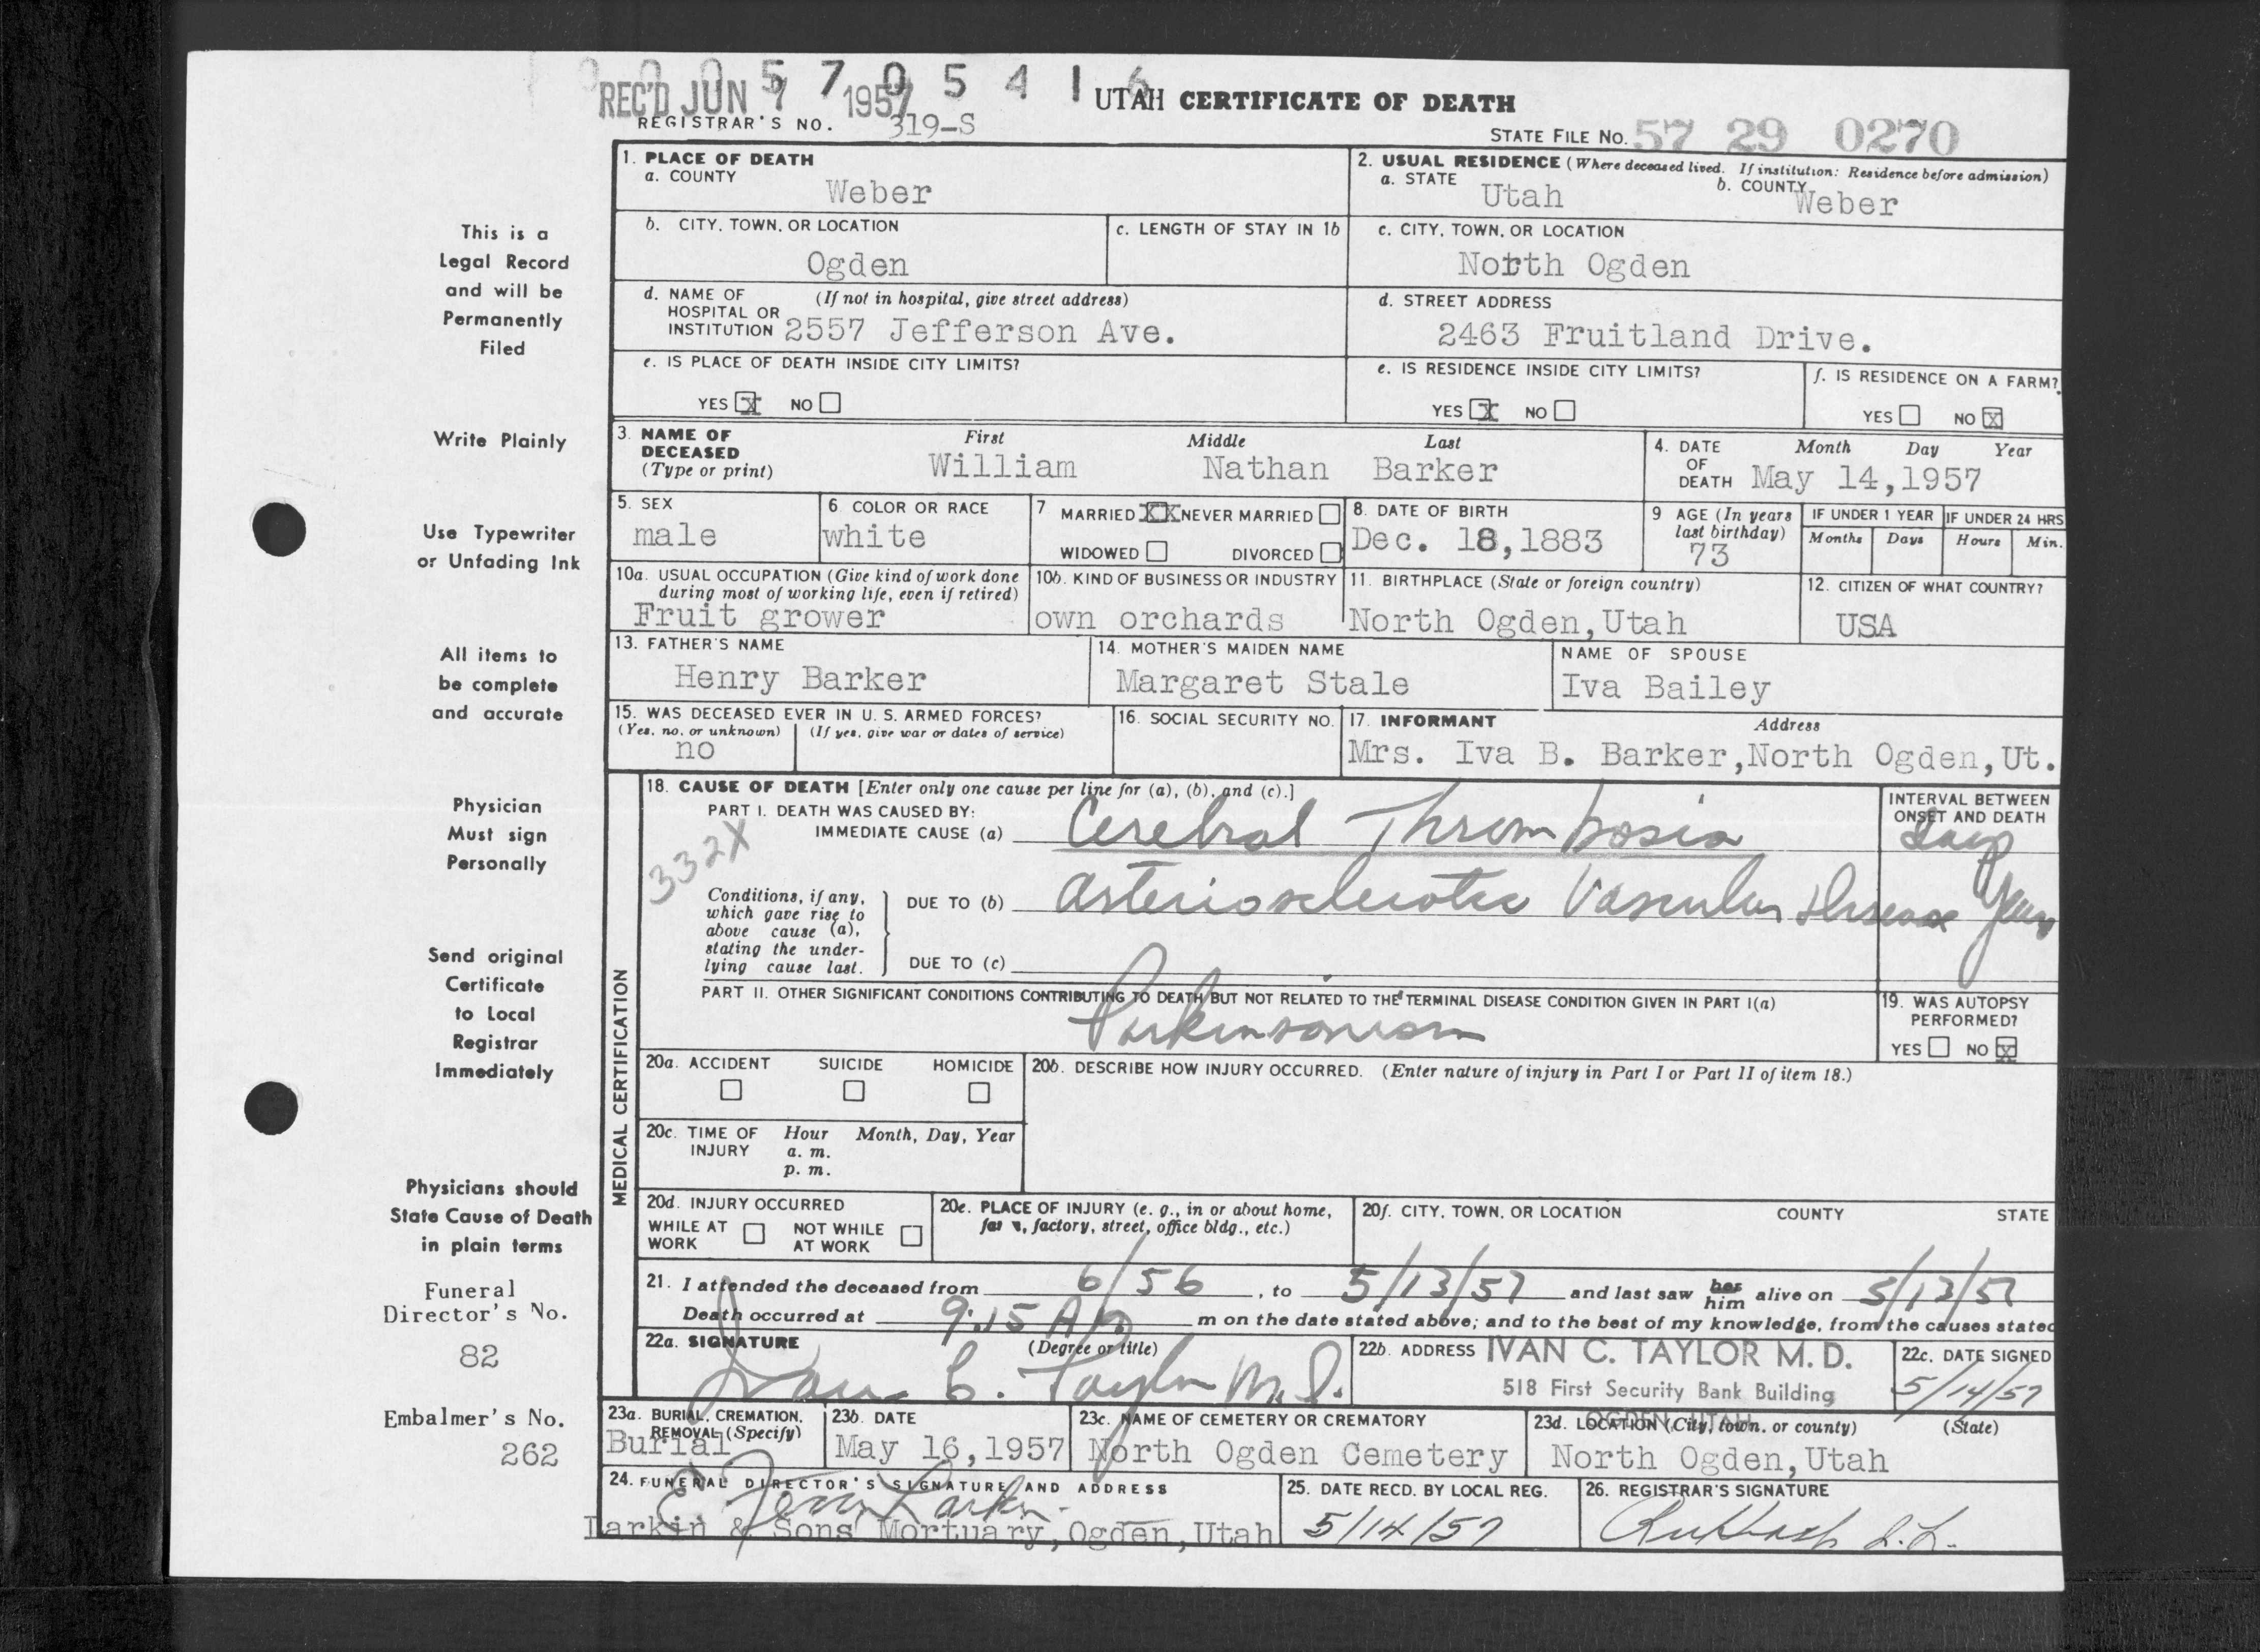 REC'D JUN 7 1957
0 0 5 7 0 5 4 1 6
UTAH CERTIFICATE OF DEATH
REGISTRAR'S NO. 319-S
STATE FILE NO. 57 29 0270
This is a
Legal Record
and will be
Permanently
Filed
Write Plainly
Use Typewriter
or Unfading Ink
All items to
be complete
and accurate
Physician
Must sign
Personally
Send original
Certificate
to Local
Registrar
Immediately
Physicians should
State Cause of Death
in plain terms
Funeral
Director's No.
82
Embalmer's No.
262
1. PLACE OF DEATH
a. COUNTY
Weber
2. USUAL RESIDENCE (Where deceased lived. If institution: Residence before admission)
a. STATE Utah b. COUNTY Weber
b. CITY, TOWN, OR LOCATION
Ogden
c. LENGTH OF STAY IN 1b
c. CITY, TOWN, OR LOCATION
North Ogden
d. NAME OF (If not in hospital, give street address)
HOSPITAL OR
INSTITUTION 2557 Jefferson Ave.
d. STREET ADDRESS
2463 Fruitland Drive.
e. IS PLACE OF DEATH INSIDE CITY LIMITS?
YES X NO
e. IS RESIDENCE INSIDE CITY LIMITS?
YES X NO
f. IS RESIDENCE ON A FARM?
YES NO X
3. NAME OF DECEASED (Type or print)
First Middle Last
William Nathan Barker
4. DATE OF DEATH
Month Day Year
May 14,1957
5. SEX
male
6. COLOR OR RACE
white
7 MARRIED XX NEVER MARRIED
WIDOWED DIVORCED
8. DATE OF BIRTH
Dec. 18,1883
9 AGE (In years
last birthday)
73
IF UNDER 1 YEAR
Months Days
IF UNDER 24 HRS
Hours Min.
10a. USUAL OCCUPATION (Give kind of work done
during most of working life, even if retired)
Fruit grower
10b. KIND OF BUSINESS OR INDUSTRY
own orchards
11. BIRTHPLACE (State or foreign country)
North Ogden,Utah
12. CITIZEN OF WHAT COUNTRY?
USA
13. FATHER'S NAME
Henry Barker
14. MOTHER'S MAIDEN NAME
Margaret Stale
NAME OF SPOUSE
Iva Bailey
15. WAS DECEASED EVER IN U. S. ARMED FORCES?
(Yes, no, or unknown) (If yes, give war or dates of service)
no
16. SOCIAL SECURITY NO.
17. INFORMANT Address
Mrs. Iva B. Barker,North Ogden,Ut.
MEDICAL CERTIFICATION
18. CAUSE OF DEATH [Enter only one cause per line for (a), (b), and (c).]
PART I. DEATH WAS CAUSED BY:
IMMEDIATE CAUSE (a) Cerebral Thrombosis
INTERVAL BETWEEN
ONSET AND DEATH
332X
Conditions, if any,
which gave rise to
above cause (a),
stating the under-
lying cause last.
DUE TO (b) Arteriosclerotic Vascular Disease Years
DUE TO (c)
PART II. OTHER SIGNIFICANT CONDITIONS CONTRIBUTING TO DEATH BUT NOT RELATED TO THE TERMINAL DISEASE CONDITION GIVEN IN PART I(a)
Parkinsonism
19. WAS AUTOPSY
PERFORMED?
YES NO X
20a. ACCIDENT SUICIDE HOMICIDE
20b. DESCRIBE HOW INJURY OCCURRED. (Enter nature of injury in Part I or Part II of item 18.)
20c. TIME OF INJURY
Hour Month, Day, Year
a. m.
p. m.
20d. INJURY OCCURRED
WHILE AT WORK NOT WHILE AT WORK
20e. PLACE OF INJURY (e. g., in or about home,
farm, factory, street, office bldg., etc.)
20f. CITY, TOWN, OR LOCATION COUNTY STATE
21. I attended the deceased from 6/56, to 5/13/57 and last saw her him alive on 5/13/57
Death occurred at 9:15 A m on the date stated above; and to the best of my knowledge, from the causes stated
22a. SIGNATURE (Degree or title)
Ivan C. Taylor M.D.
22b. ADDRESS IVAN C. TAYLOR M. D.
518 First Security Bank Building
OGDEN, UTAH
22c. DATE SIGNED
5/14/57
23a. BURIAL, CREMATION,
REMOVAL (Specify)
Burial
23b. DATE
May 16,1957
23c. NAME OF CEMETERY OR CREMATORY
North Ogden Cemetery
23d. LOCATION (City, town, or county) (State)
North Ogden,Utah
24. FUNERAL DIRECTOR'S SIGNATURE AND ADDRESS
Larkin
Larkin & Sons Mortuary,Ogden,Utah
25. DATE RECD. BY LOCAL REG.
5/14/57
26. REGISTRAR'S SIGNATURE